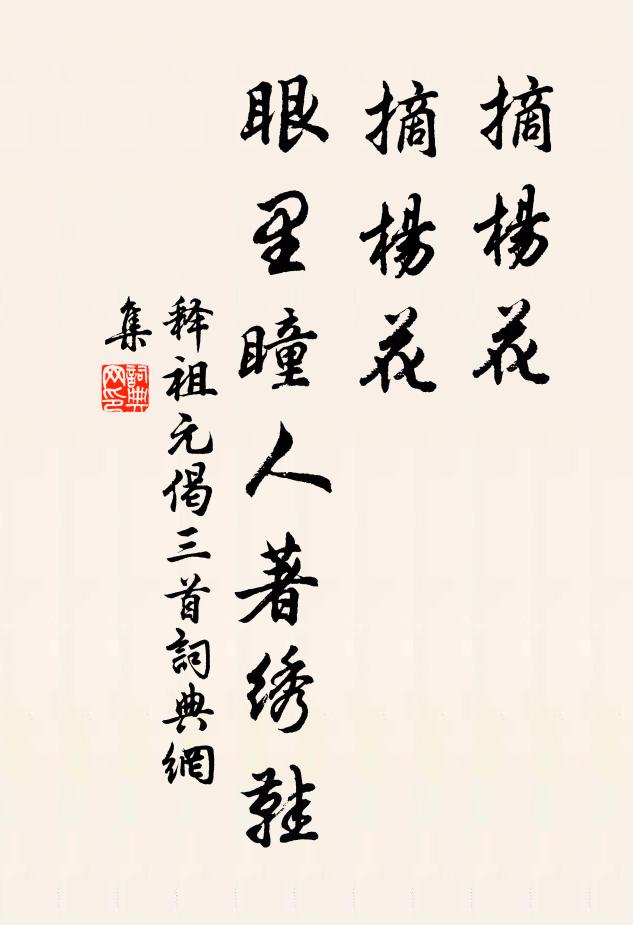 摘楊花
摘楊花
眼里瞳人著绣鞋
释祖元偈三首詞典網
集
詞典
网印